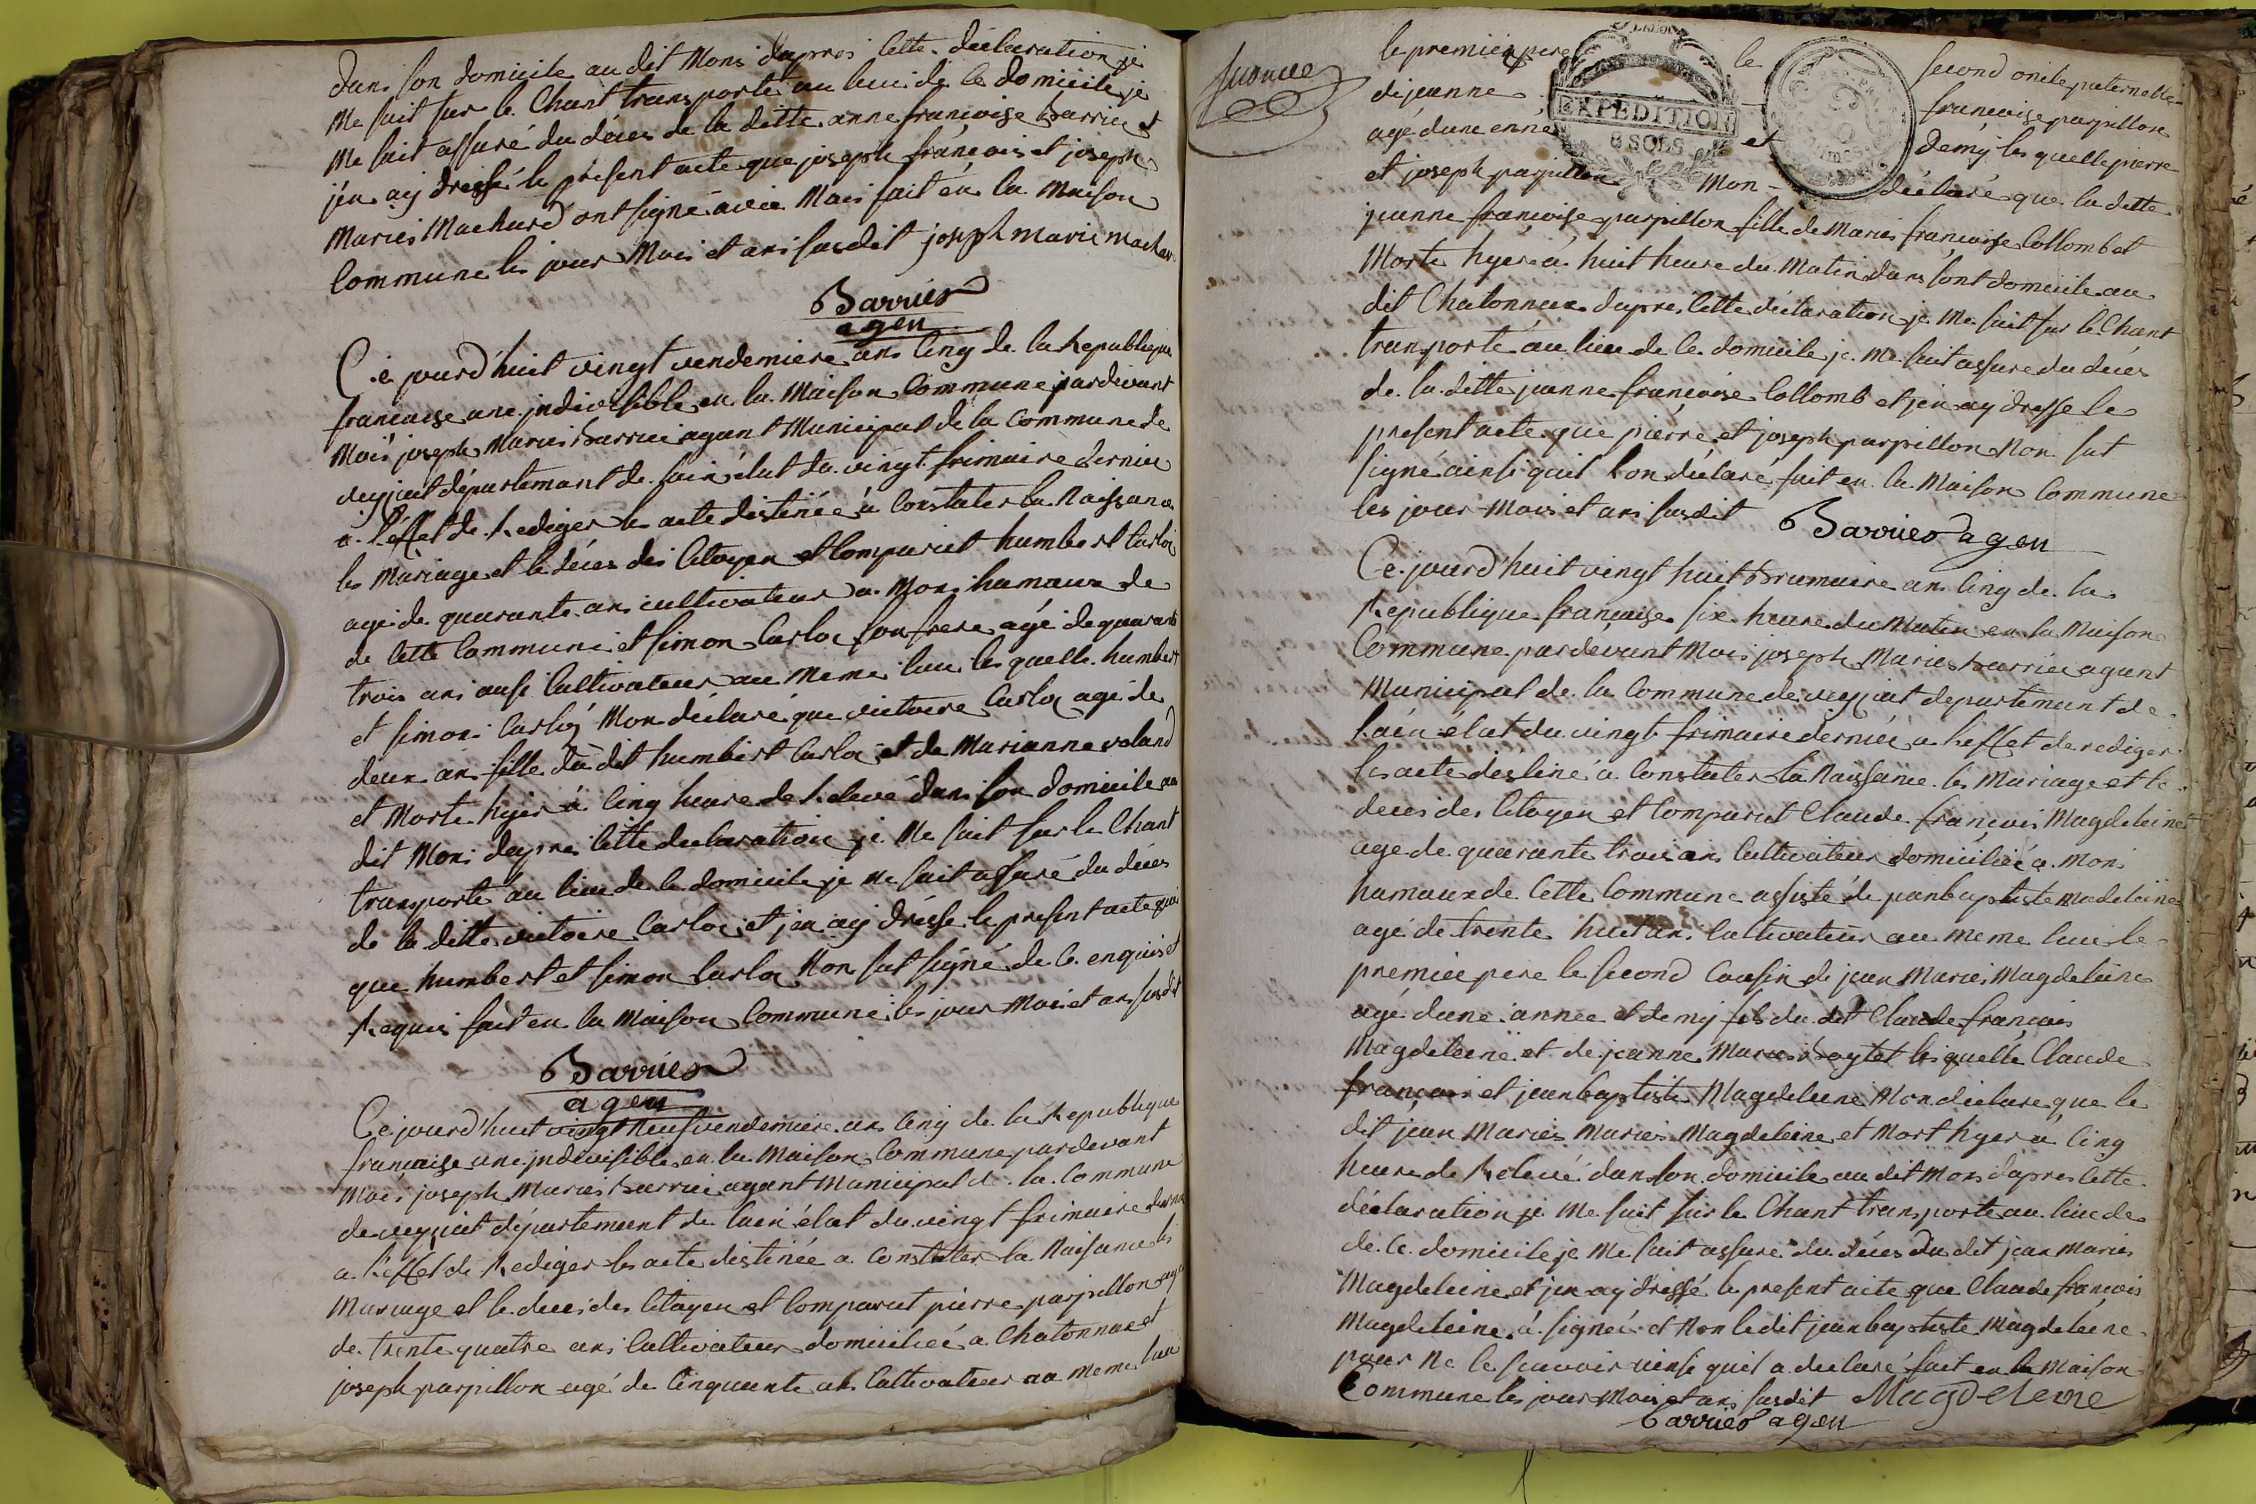 dans son domicile au dit Mons dapres cette declaration je
me suit sur le Chant transporté au lieu de ce domicile je
me suit assuré du déces de la ditte anne francoise barrier et
j'en aij dressé le présent acte que joseph francois et joseph
Maries Machard ont signé avec Mois fait en la Maison
Commune les jour Mois et ans susdit joseph marie machar
Barrier
agen
Ce jourd'huit vingt vendemiere ans cinq de la Republique
francaise une jndivisible en la Maison Commune pardevant
Mois joseph Maries barrier agant Municipal de la Commune de
veyziat département de lain élut du vingt frimaire dernier
a l'éffet de Rediger les acte distinée à Constater la Naissance
les Mariage et le déces des Citoyen et Comparut humbert Carloz
agé de quarante ans cultivateur a Mons hamaux de
de cette Commune et simon Carloz son frere agé de quarante
trois ans ausi Cultivateur au meme lieu les quelle humbert
et simon Carloz Mon déclaré que victoire Carloz agé de
deux ans fille du dit humbert Carloz et de Marianne roland
et Morte hyer à cinq heure de Relevé dans son domicile au
dit Mons dapres cette declaration je me suit sur le Chant
transporté au lieu de ce domicile je me suit assuré du déces
de la ditte victoire Carloz et jen aij drésse le present acte
que humbert et simon Carloz Non sut signé de ce enquis et
Requis fait en la Maison Commune les jour Mois et ans susdit
Barrier
agen
Ce jourd'huit vingt neuf vendemiere ans cinq de la Republique
francaise une jndivisible en la Maison Commune pardevant
Mois joseph Maries barrier agant Municipal de la Commune
de veyziat département de lain élut du vingt frimaire dernier
a l'effet de Rediger les acte distinée a Constater la Naisance les
Mariage et le deces des Citoyen et Comparut pierre parpillon agé
de trente quatre ans Cultivateur domiciliée a Chatonnax et
joseph parpillon agé de Cinquante ans Cultivateur au meme lieu
le premier pere le second oncle paternel
de jeanne francoise parpillon
agé dune enné et demÿ les quelle pierre
et joseph parpillon Mon déclaré que la ditte
jeanne francoise parpillon fille de Maries francoise Collombet
Morte hyer à huit heure du Matin dans sont domicile au
dit Chatonnax dapres cette déclaration je me suit sur le Chant
transporté au lieu de ce domicile je me suit assure du déces
de la ditte jeanne francoise Collomb et jen aij dresse le
présent acte que pierre et joseph parpillon Non sut
signé ainsi quil lon déclaré fait en la Maison Commune
les jour Mois et ans susdit Barrier agen
Ce jourd'huit vingt huit brumaire ans cinq de la
Republique francaise six heure du Matin en la Maison
Commune pardevant Mois joseph Maries barrier agant
Municipal de la Commune de veyziat departement de
lain élut du vingt frimaire dérnier a l'effet de rediger
les acte destiné a Constater la Naissance les Mariage et le
deces des Citoyen et Comparut Claude francois Magdeleine
agé de quarante trois ans Cultivateur domiciliée a Mons
hamaux de Cette Commune assisté de jeanbaptiste Madeleine
agé de trente huit ans Cultivateur au meme lieu le
premier pere le second Cousin de jean Maries Magdeleine
agé dune année et demij fils du dit Claude francois
Magdeleine et de jeanne Maries les quelle Claude
francois et jeanbaptiste Magdeleine Mon declaré que le
dit jean Maries Maries Magdeleine et Mort hyer à Cinq
heure de Relevé dans son domicile au dit Mons dapres cette
déclaration je me suit sur le Chant transporte au lieu de
de Ce domicile je me suit assure du déces du dit jean Maries
Magdeleine et jen aij dréssé le present acte que Claude francois
Magdeleine à signée et Non le dit jeanbaptiste Magdeleine
pour Ne le scavoir ainsi quil a declaré fait en la Maison
Commune les jour Mois et ans susdit Magdeleine
Barrier agen
EXPEDITION
8 SOLS